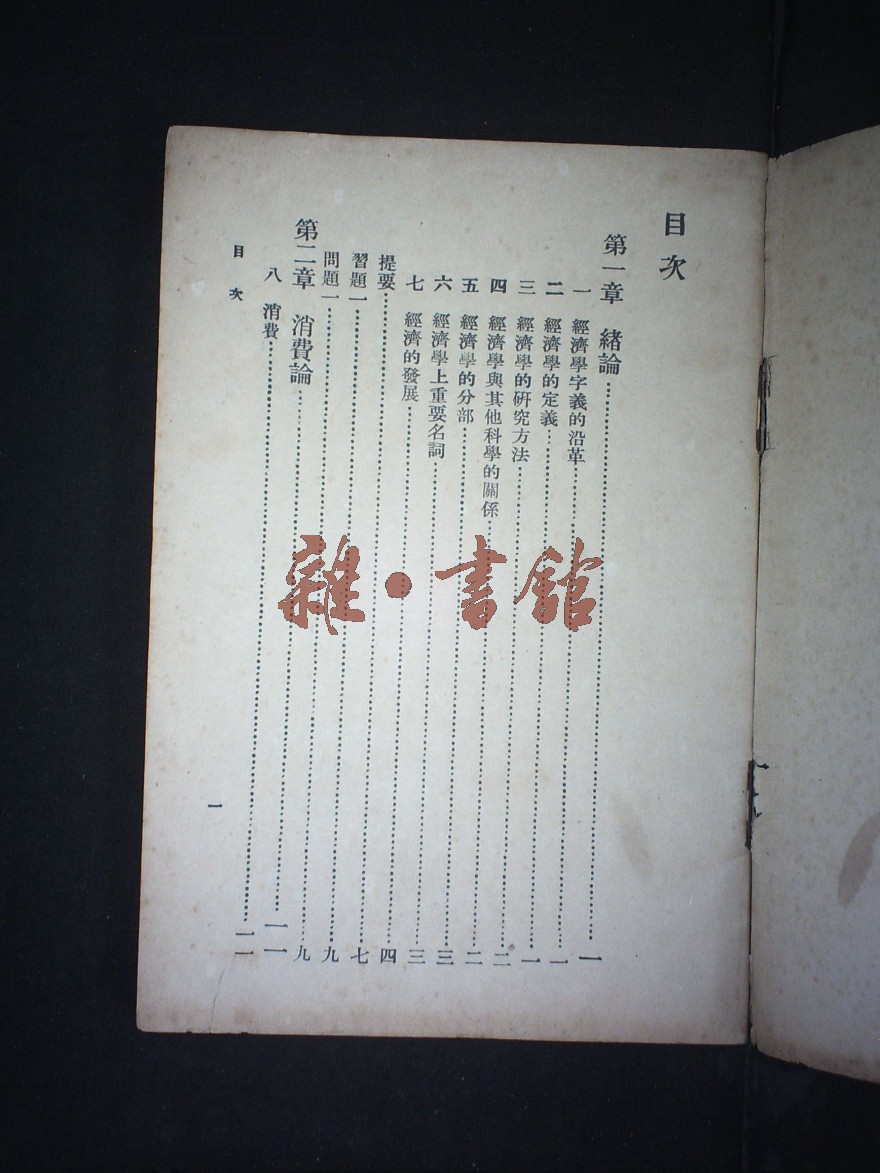 目次
第一章 緒論……一
一 經濟學字義的沿革……一
二 經濟學的定義……一
三 經濟學的研究方法……二
四 經濟學與其他科學的關係……二
五 經濟學的分部……三
六 經濟學上重要名詞……三
七 經濟的發展……四
提要……七
習題一……九
問題一……九
第二章 消費論……一一
八 消費……一一
目次
一
雜·書館